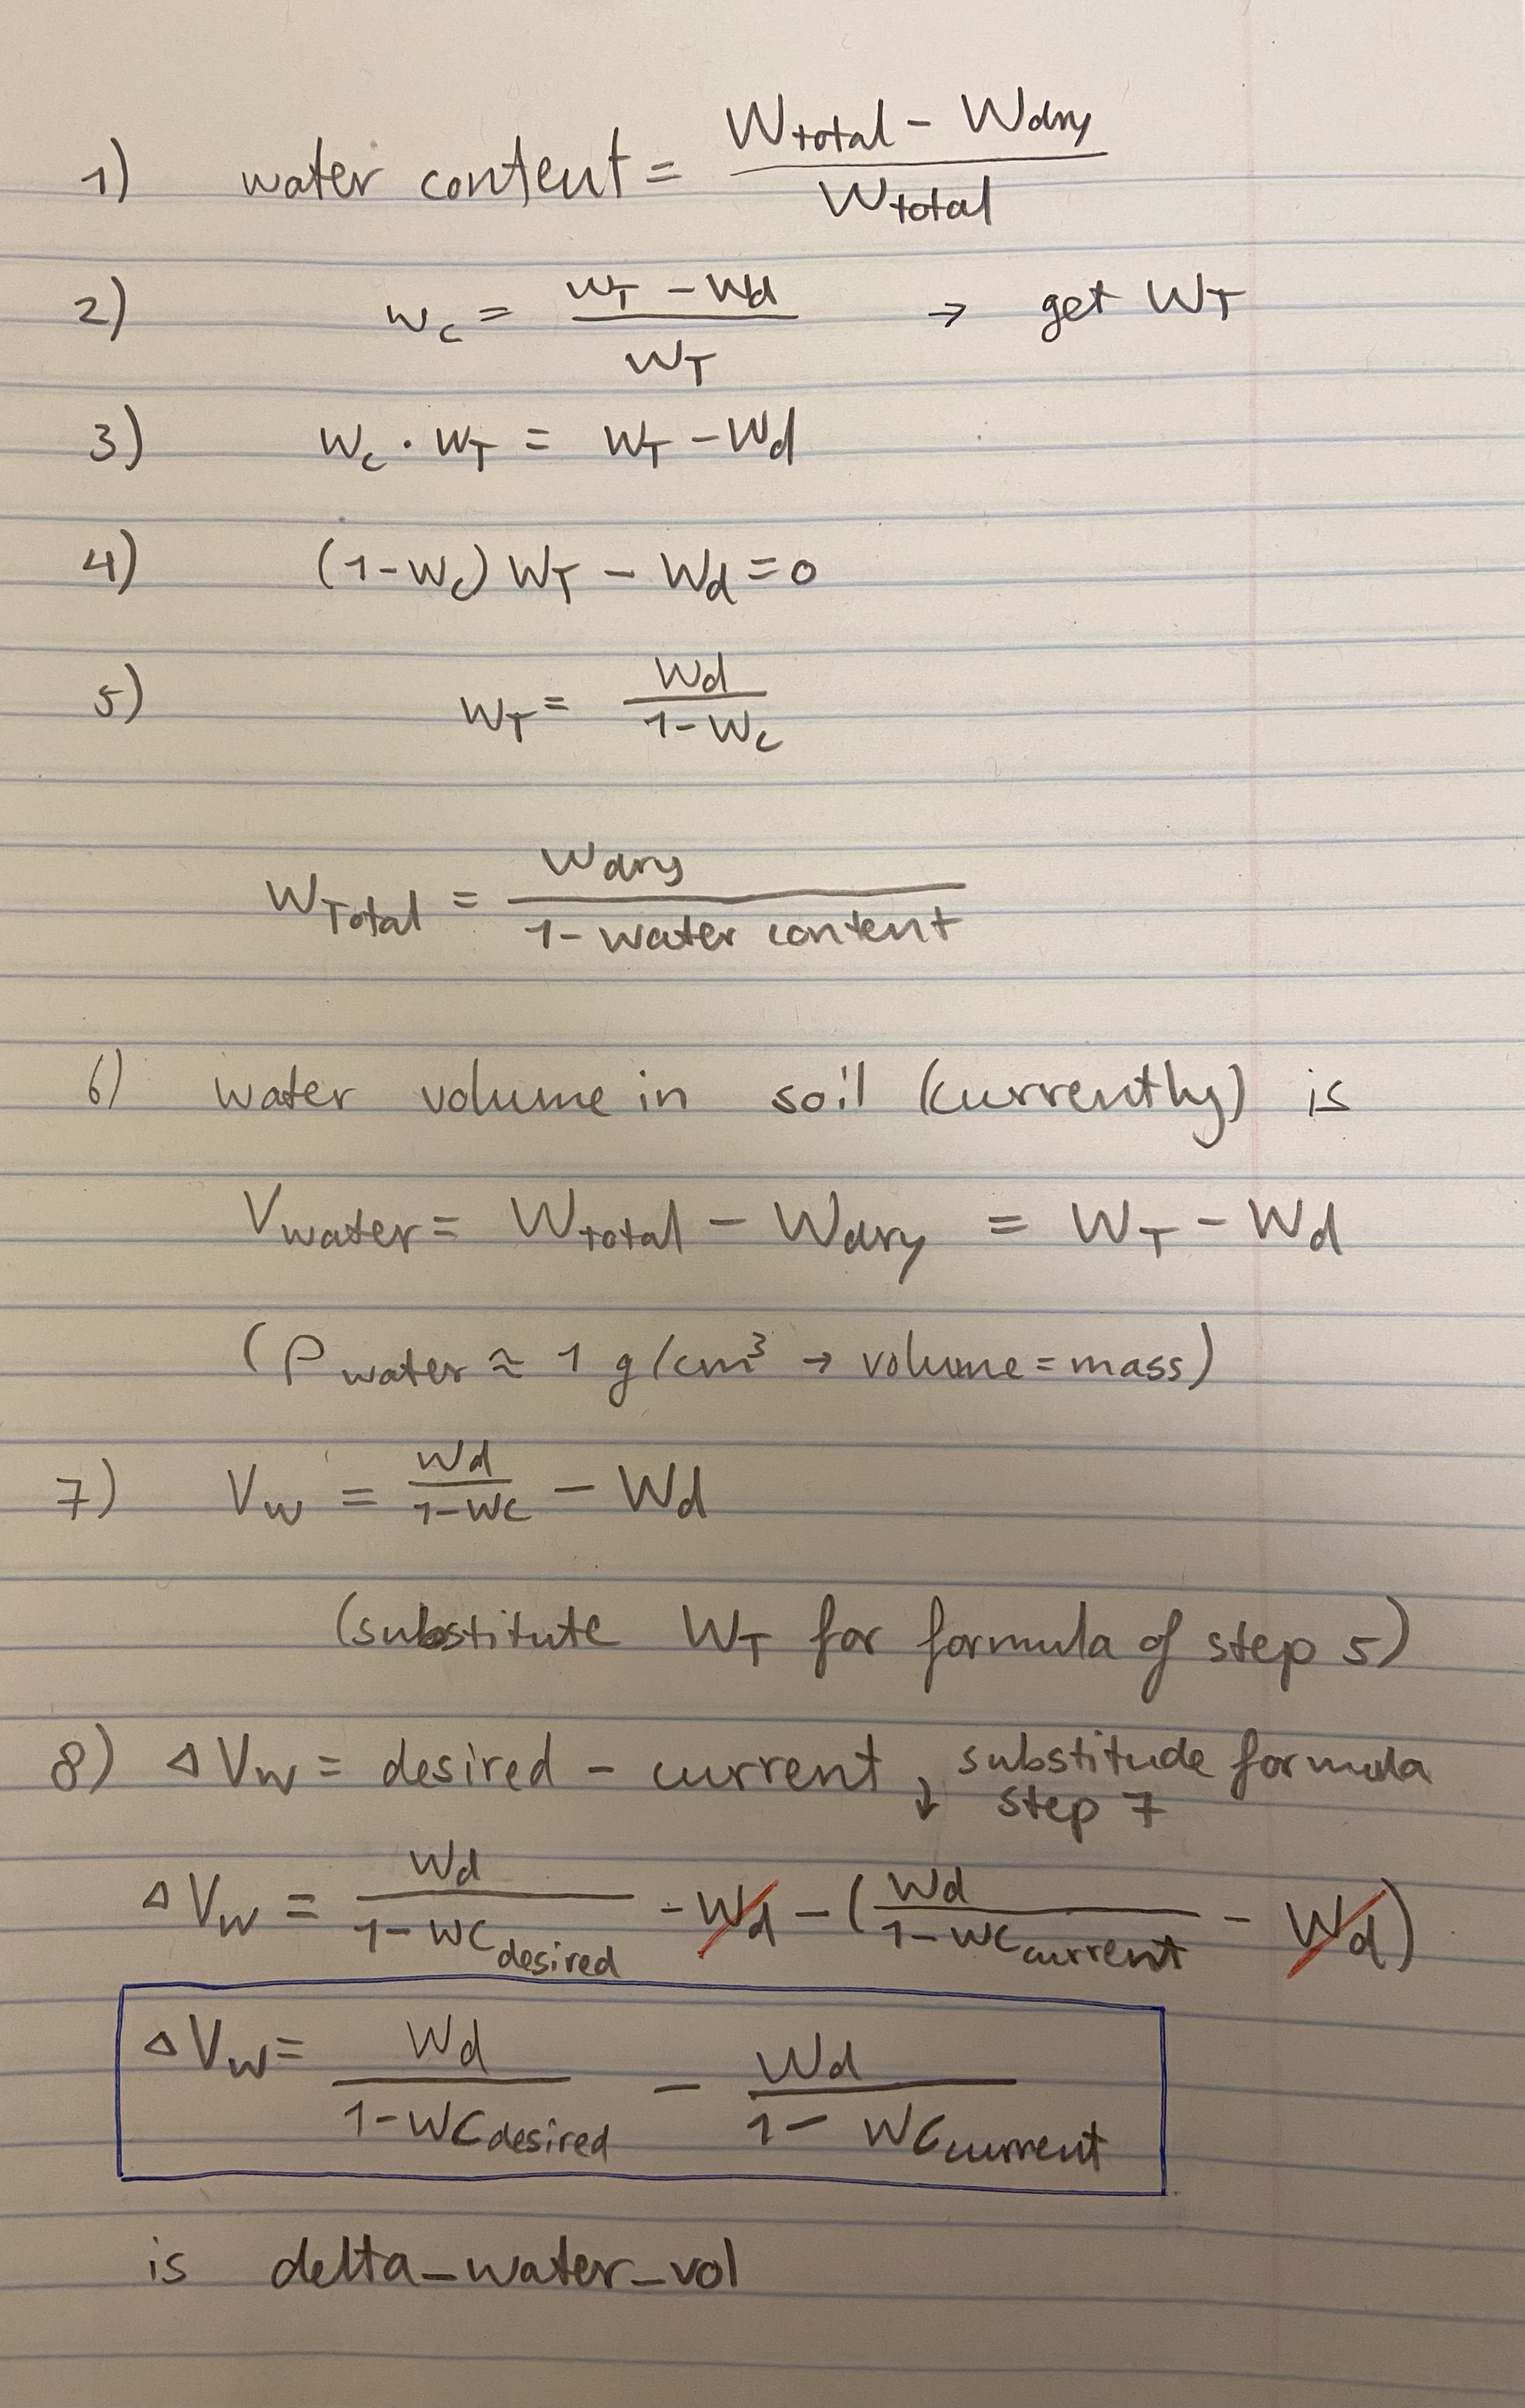 1) water content = (W_total - W_dry) / W_total
2) w_c = (W_T - W_d) / W_T → get W_T
3) w_c · W_T = W_T - W_d
4) (1-w_c) W_T - W_d = 0
5) W_T = W_d / (1-W_c)
W_Total = W_dry / (1-water content)
6) water volume in soil (currently) is
V_water = W_total - W_dry = W_T - W_d
(ρ_water ≈ 1 g/cm³ → volume = mass)
7) V_w = W_d / (1-WC) - W_d
(substitute W_T for formula of step 5)
8) ΔV_w = desired - current ↓ substitude formula
step 7
ΔV_w = W_d / (1-WC_desired) - W_d - (W_d / (1-WC_current) - W_d)
ΔV_w = W_d / (1-WC_desired) - W_d / (1- WC_current)
is delta_water_vol